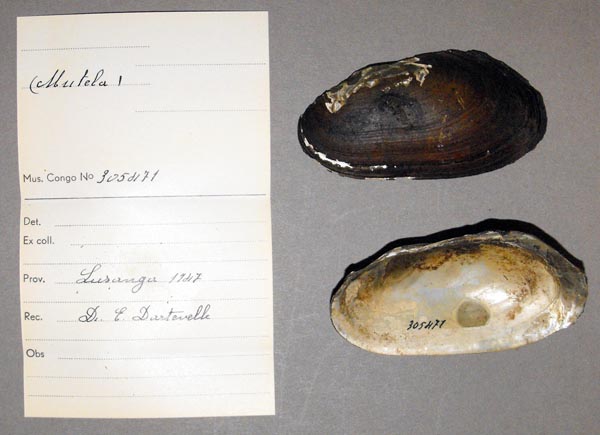 (Mutela)
Mus. Congo No 305471
Det.
Ex coll.
Prov. Lusanga 1947
Rec. Dr. E. Dartevelle
Obs
305471